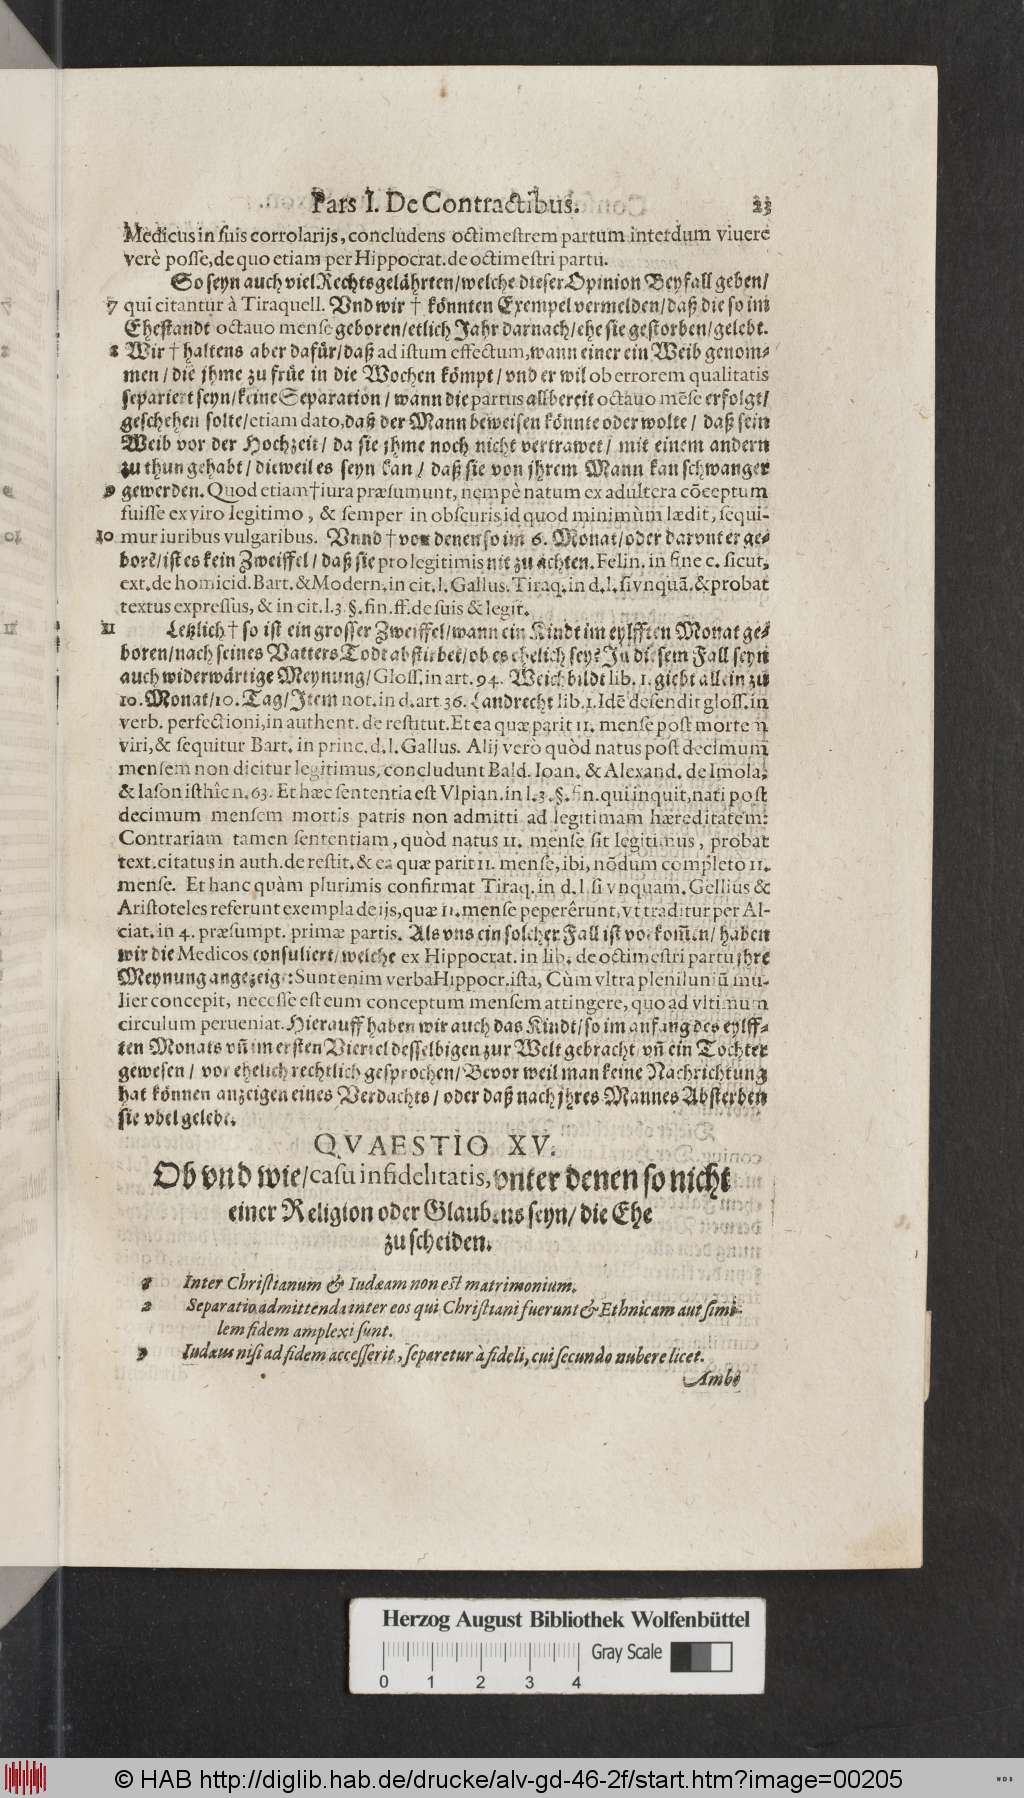 Pars I. De Contractibus. 23
Medicus in suis corrolarijs, concludens octimestrem partum interdum viuere
verè posse, de quo etiam per Hippocrat. de octimestri partu.
So seyn auch viel Rechtsgelährten/ welche dieser Opinion Beyfall geben/
7 qui citantur à Tiraquell. Vnd wir † könnten Exempel vermelden/ daß die so im
Ehestandt octauo mense geboren/ etlich Jahr darnach/ ehe sie gestorben/ gelebt.
8 Wir † haltens aber dafür/ daß ad istum effectum, wann einer ein Weib genom-
men/ die jhme zu früe in die Wochen kömpt/ vnd er wil ob errorem qualitatis
separiert seyn/ keine Separation/ wann die partus allbereit octauo mēse erfolgt/
geschehen solte/ etiam dato, daß der Mann beweisen könnte oder wolte/ daß sein
Weib vor der Hochzeit/ da sie jhme noch nicht vertrawet/ mit einem andern
zu thun gehabt/ dieweil es seyn kan/ daß sie von jhrem Mann kan schwanger
9 gewerden. Quod etiam † iura præsumunt, nempè natum ex adultera cōceptum
fuisse ex viro legitimo, & semper in obscuris id quod minimùm lædit, sequi-
10 mur iuribus vulgaribus. Vnnd † von denen so im 6. Monat/ oder darunter ge-
borē/ ist es kein Zweiffel/ daß sie pro legitimis nit zu achten. Felin. in fine c. sicut,
ext. de homicid. Bart. & Modern. in cit. l. Gallus. Tiraq. in d. l. si vnquā. & probat
textus expressus, & in cit. l. 3. §. fin. ff. de suis & legit.
11 Letzlich † so ist ein grosser Zweiffel/ wann ein Kindt im eylfften Monat ge-
boren/ nach seines Vatters Todt abstirbet/ ob es ehelich sey? In diesem Fall seyn
auch widerwärtige Meynung/ Gloss. in art. 94. Weichbildt lib. 1. giebt allein zu
10. Monat/ 10. Tag/ Item not. in d. art. 36. Landrecht lib. 1. Idē defendit gloss. in
verb. perfectioni, in authent. de restitut. Et ea quæ parit 11. mense post mortē
viri, & sequitur Bart. in princ. d. l. Gallus. Alij verò quòd natus post decimum
mensem non dicitur legitimus, concludunt Bald. Ioan. & Alexand. de Imola,
& Iason isthîc n. 63. Et hæc sententia est Vlpian. in l. 3. §. fin. qui inquit, nati post
decimum mensem mortis patris non admitti ad legitimam hæreditatem:
Contrariam tamen sententiam, quòd natus 11. mense sit legitimus, probat
text. citatus in auth. de restit. & ea quæ parit 11. mense, ibi, nōdum completo 11.
mense. Et hanc quàm plurimis confirmat Tiraq. in d. l. si vnquam. Gellius &
Aristoteles referunt exempla de ijs, quæ 11. mense peperêrunt, vt traditur per Al-
ciat. in 4. præsumpt. primæ partis. Als vns ein solcher Fall ist vorkom̄en/ haben
wir die Medicos consuliert/ welche ex Hippocrat. in lib. de octimestri partu jhre
Meynung angezeigt: Sunt enim verba Hippocr. ista, Cùm vltra pleniluniū mu-
lier concepit, necesse est eum conceptum mensem attingere, quo ad vltimum
circulum perueniat. Hierauff haben wir auch das Kindt/ so im anfang des eylff-
ten Monats vn̄ im ersten Viertel desselbigen zur Welt gebracht/ vn̄ ein Tochter
gewesen/ vor ehelich rechtlich gesprochen/ Bevor weil man keine Nachrichtung
hat können anzeigen eines Verdachts/ oder daß nach jhres Mannes Absterben
sie vbel gelebt.
QVAESTIO XV.
Ob vnd wie/ casu infidelitatis, vnter denen so nicht
einer Religion oder Glaubens seyn/ die Ehe
zu scheiden.
1 Inter Christianum & Iudæam non est matrimonium.
2 Separatio admittenda inter eos qui Christiani fuerunt & Ethnicam aut simi-
lem fidem amplexi sunt.
3 Iudæus nisi ad fidem accesserit, separetur à fideli, cui secundo nubere licet.
Ambo
Herzog August Bibliothek Wolfenbüttel
Gray Scale
0 1 2 3 4
© HAB http://diglib.hab.de/drucke/alv-gd-46-2f/start.htm?image=00205